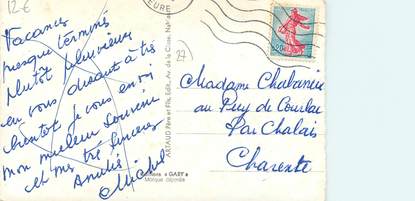 12 €
EURE
Vacances
presque terminés
plutôt pluvieux
en vous disant à très
bientot je vous envoi
mon meilleur Souvenir
et mes très Sincères
Amitiés
Michel
27
ARTAUD Père et Fils, Édit., Av. de la Close, Nantes
"GABY"
Marque déposée
0,20
Madame Chabanier
au Puy de Courlac
Par Chalais
Charente